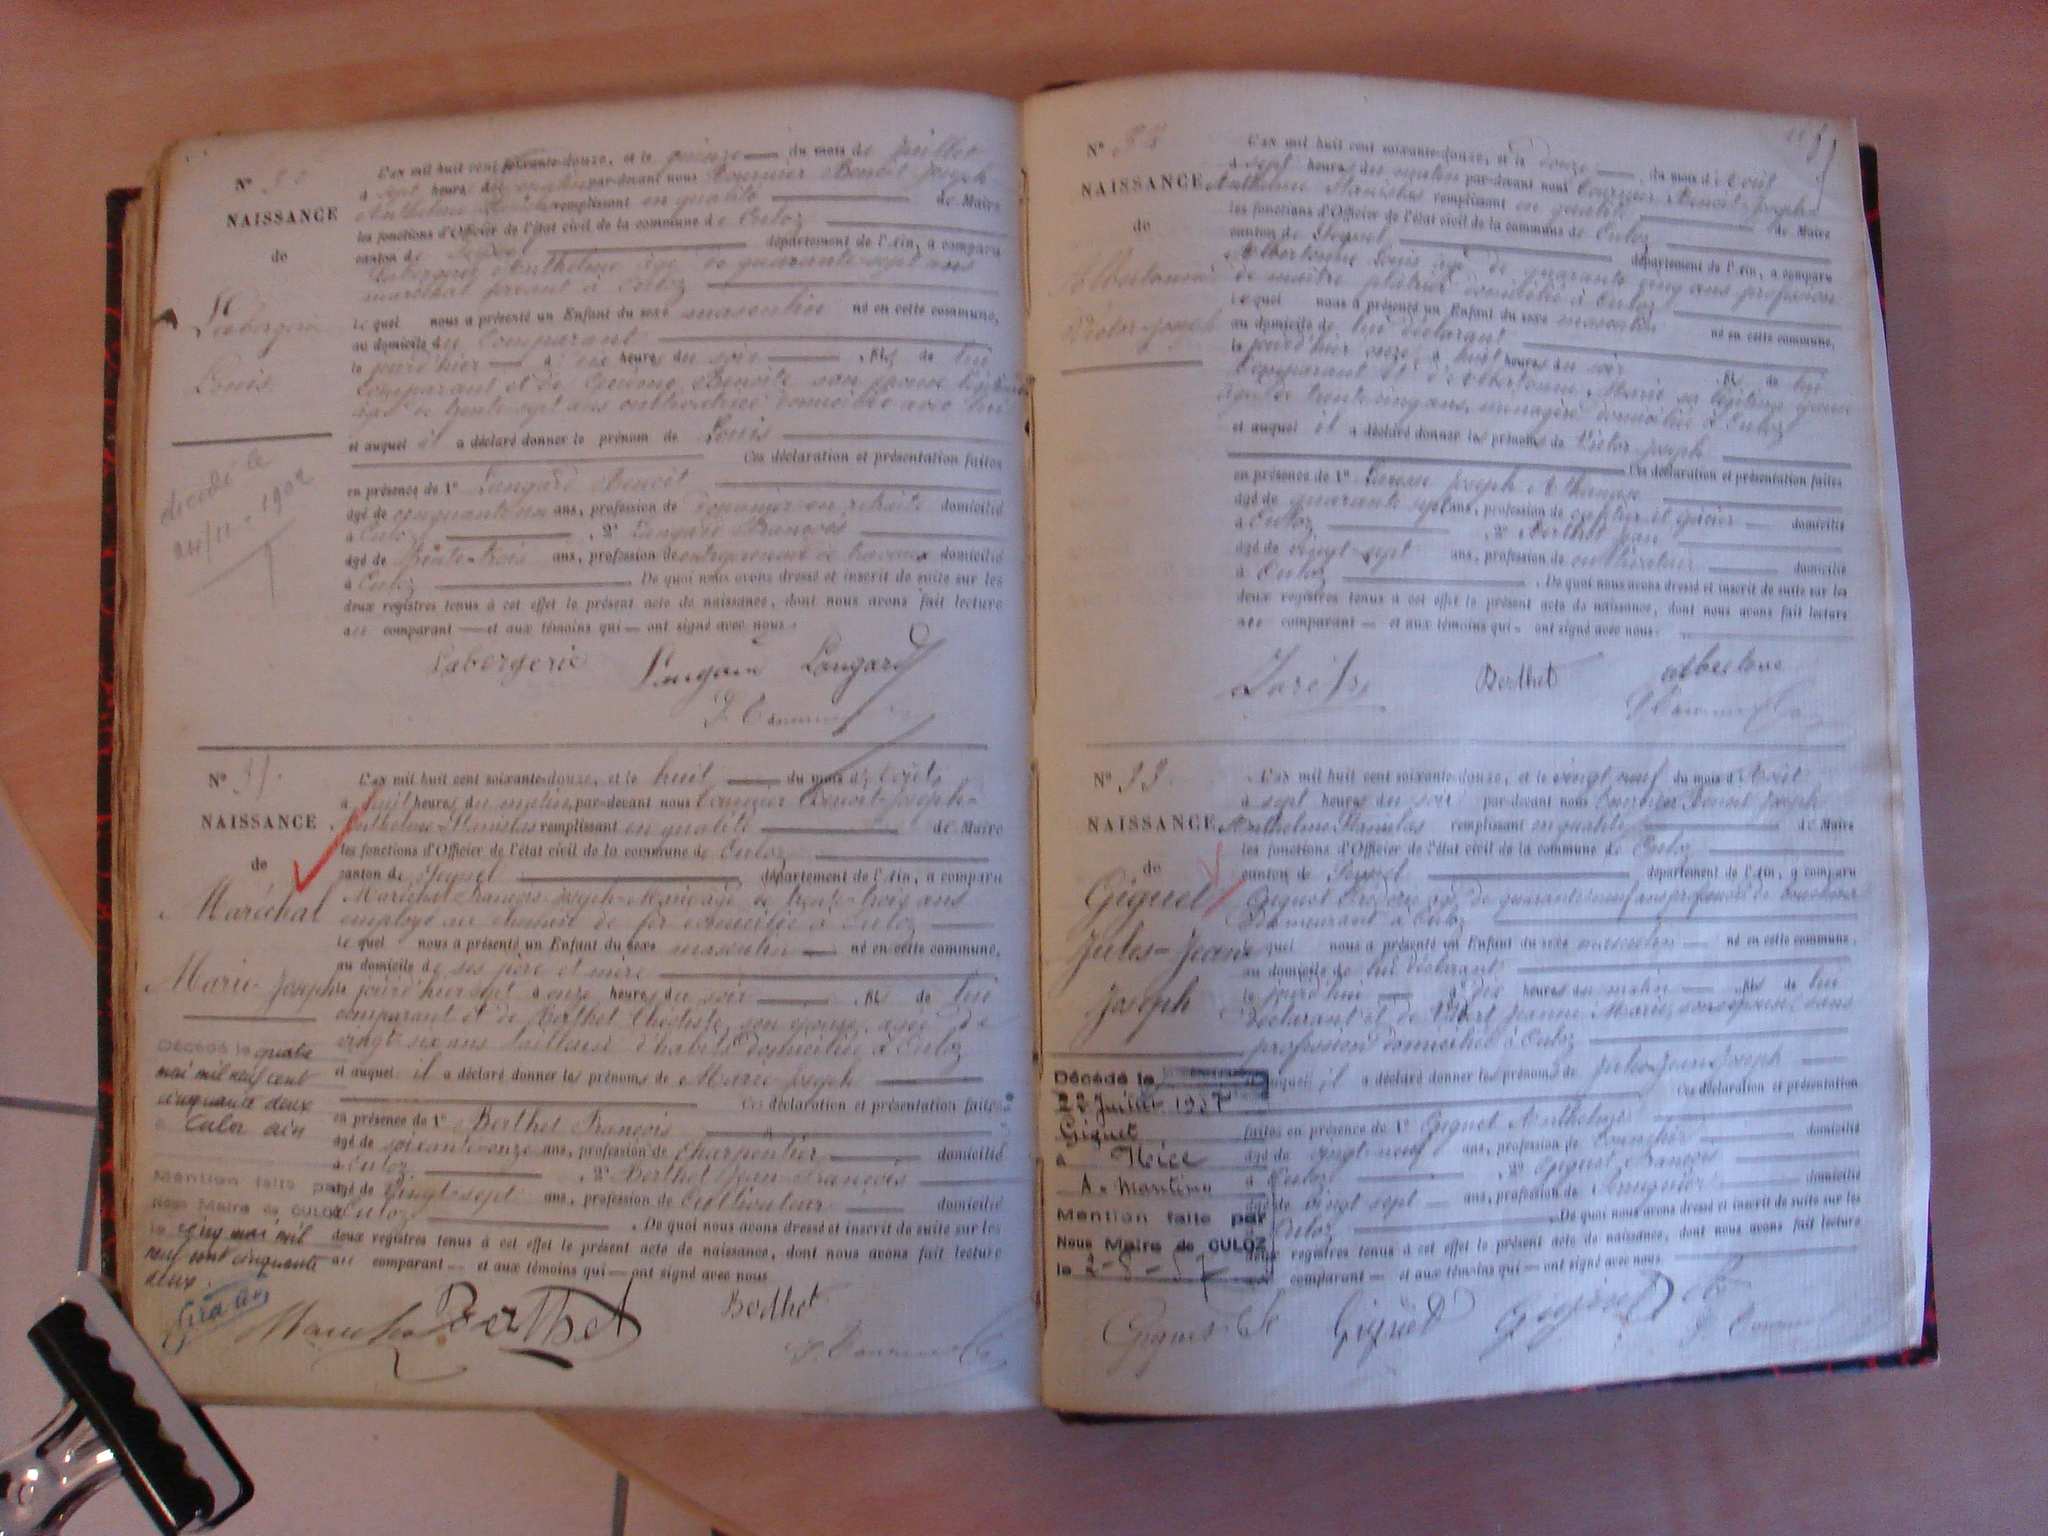 L'an mil huit cent soixante-douze, et le quinze du mois de Juillet
N°
à sept heures du matin par-devant nous Benoit Joseph
NAISSANCE
Anthelme remplissant en qualité de Maire
les fonctions d'Officier de l'état civil de la commune de Culoz
de
canton de département de l'Ain, a comparu
Labergerie Anthelme âgé de quarante-sept ans
maréchal ferrant à Culoz
Labergerie
Le quel nous a présenté un Enfant du sexe masculin né en cette commune,
au domicile du Comparant
le jourd'hier à heures du soir fils de lui
Louis
comparant et de Benoite son épouse légitime
âgée de trente sept ans cultivatrice domiciliée avec lui
et auquel il a déclaré donner le prénom de Louis
Ces déclaration et présentation faites
décédé le
24/11-1902
en présence de 1° Benoit
âgé de cinquante un ans, profession de en retraite domicilié
à Culoz 2° François
âgé de trente-trois ans, profession de entrepreneur de travaux domicilié
à Culoz De quoi nous avons dressé et inscrit de suite sur les
deux registres tenus à cet effet le présent acte de naissance, dont nous avons fait lecture
au comparant et aux témoins qui ont signé avec nous.
Labergerie
N° 31.
L'an mil huit cent soixante-douze, et le huit du mois d'Août
à huit heures du matin, par-devant nous Benoit-Joseph-
NAISSANCE
Anthelme Stanislas remplissant en qualité de Maire
les fonctions d'Officier de l'état civil de la commune de Culoz
de
canton de Seyssel département de l'Ain, a comparu
Maréchal
Maréchal François-Joseph-Marie âgé de trente-trois ans
employé au chemin de fer domicilié à Culoz
Le quel nous a présenté un Enfant du sexe masculin né en cette commune,
au domicile de ses père et mère
Marie-Joseph
le jourd'hier sept à onze heures du soir fils de lui
comparant et de Berthet son épouse âgée de
vingt-six ans tailleuse d'habits domiciliée à Culoz
et auquel il a déclaré donner les prénoms de Marie-Joseph
Ces déclaration et présentation faites
Décédé le quatre
mai mil neuf cent
cinquante deux
à Culoz ain
Mention faite par
Nous Maire de CULOZ
le cinq mai mil
neuf cent cinquante
deux.
en présence de 1° Berthet François
âgé de soixante-onze ans, profession de Charpentier domicilié
à Culoz 2° Berthet Jean François
âgé de vingt-sept ans, profession de Cultivateur domicilié
à Culoz De quoi nous avons dressé et inscrit de suite sur les
deux registres tenus à cet effet le présent acte de naissance, dont nous avons fait lecture
au comparant et aux témoins qui ont signé avec nous
Berthet Berthet
N° 32
L'an mil huit cent soixante-douze, et le douze du mois d'Août
à sept heures du matin par-devant nous Benoit-Joseph-
NAISSANCE
Anthelme Stanislas remplissant en qualité de Maire
les fonctions d'Officier de l'état civil de la commune de Culoz
de
canton de Seyssel département de l'Ain, a comparu
Louis âgé de quarante cinq ans profession
de maître plâtrier domicilié à Culoz
Le quel nous a présenté un Enfant du sexe masculin né en cette commune,
Victor-Joseph
au domicile de lui déclarant
le jourd'hier onze à huit heures du soir fils de lui
comparant et Marie sa légitime épouse
âgée de trente-cinq ans, ménagère domiciliée à Culoz
et auquel il a déclaré donner les prénoms de Victor Joseph
Ces déclaration et présentation faites
en présence de 1° Joseph
âgé de quarante sept ans, profession de domicilié
à Culoz 2° Berthet Jean
âgé de vingt-sept ans, profession de cultivateur domicilié
à Culoz De quoi nous avons dressé et inscrit de suite sur les
deux registres tenus à cet effet le présent acte de naissance, dont nous avons fait lecture
au comparant et aux témoins qui ont signé avec nous.
Berthet
N° 33.
L'an mil huit cent soixante-douze, et le vingt neuf du mois d'Août
à sept heures du soir par-devant nous Benoit Joseph
NAISSANCE
Anthelme Stanislas remplissant en qualité de Maire
les fonctions d'Officier de l'état civil de la commune de Culoz
de
canton de Seyssel département de l'Ain, a comparu
Giguet
Giguet âgé de quarante neuf ans profession de
demeurant à Culoz
Jules-Jean
Le quel nous a présenté un Enfant du sexe masculin né en cette commune,
au domicile de lui déclarant
Joseph
le jourd'hui à dix heures du matin fils de lui
déclarant et de Jeanne Marie, son épouse, sans
profession domiciliée à Culoz
et auquel il a déclaré donner les prénoms de Jules-Jean Joseph
Ces déclaration et présentation
Décédé le
22 Juillet
Giguet
à Nice
A. Maritime
Mention faite par
Nous Maire de CULOZ
le 2-5-57
faites en présence de 1° Giguet Anthelme
âgé de vingt-neuf ans, profession de domicilié
à Culoz 2° Giguet François
âgé de vingt sept ans, profession de domicilié
à Culoz De quoi nous avons dressé et inscrit de suite sur les
deux registres tenus à cet effet le présent acte de naissance, dont nous avons fait lecture
au comparant et aux témoins qui ont signé avec nous.
Giguet Giguet